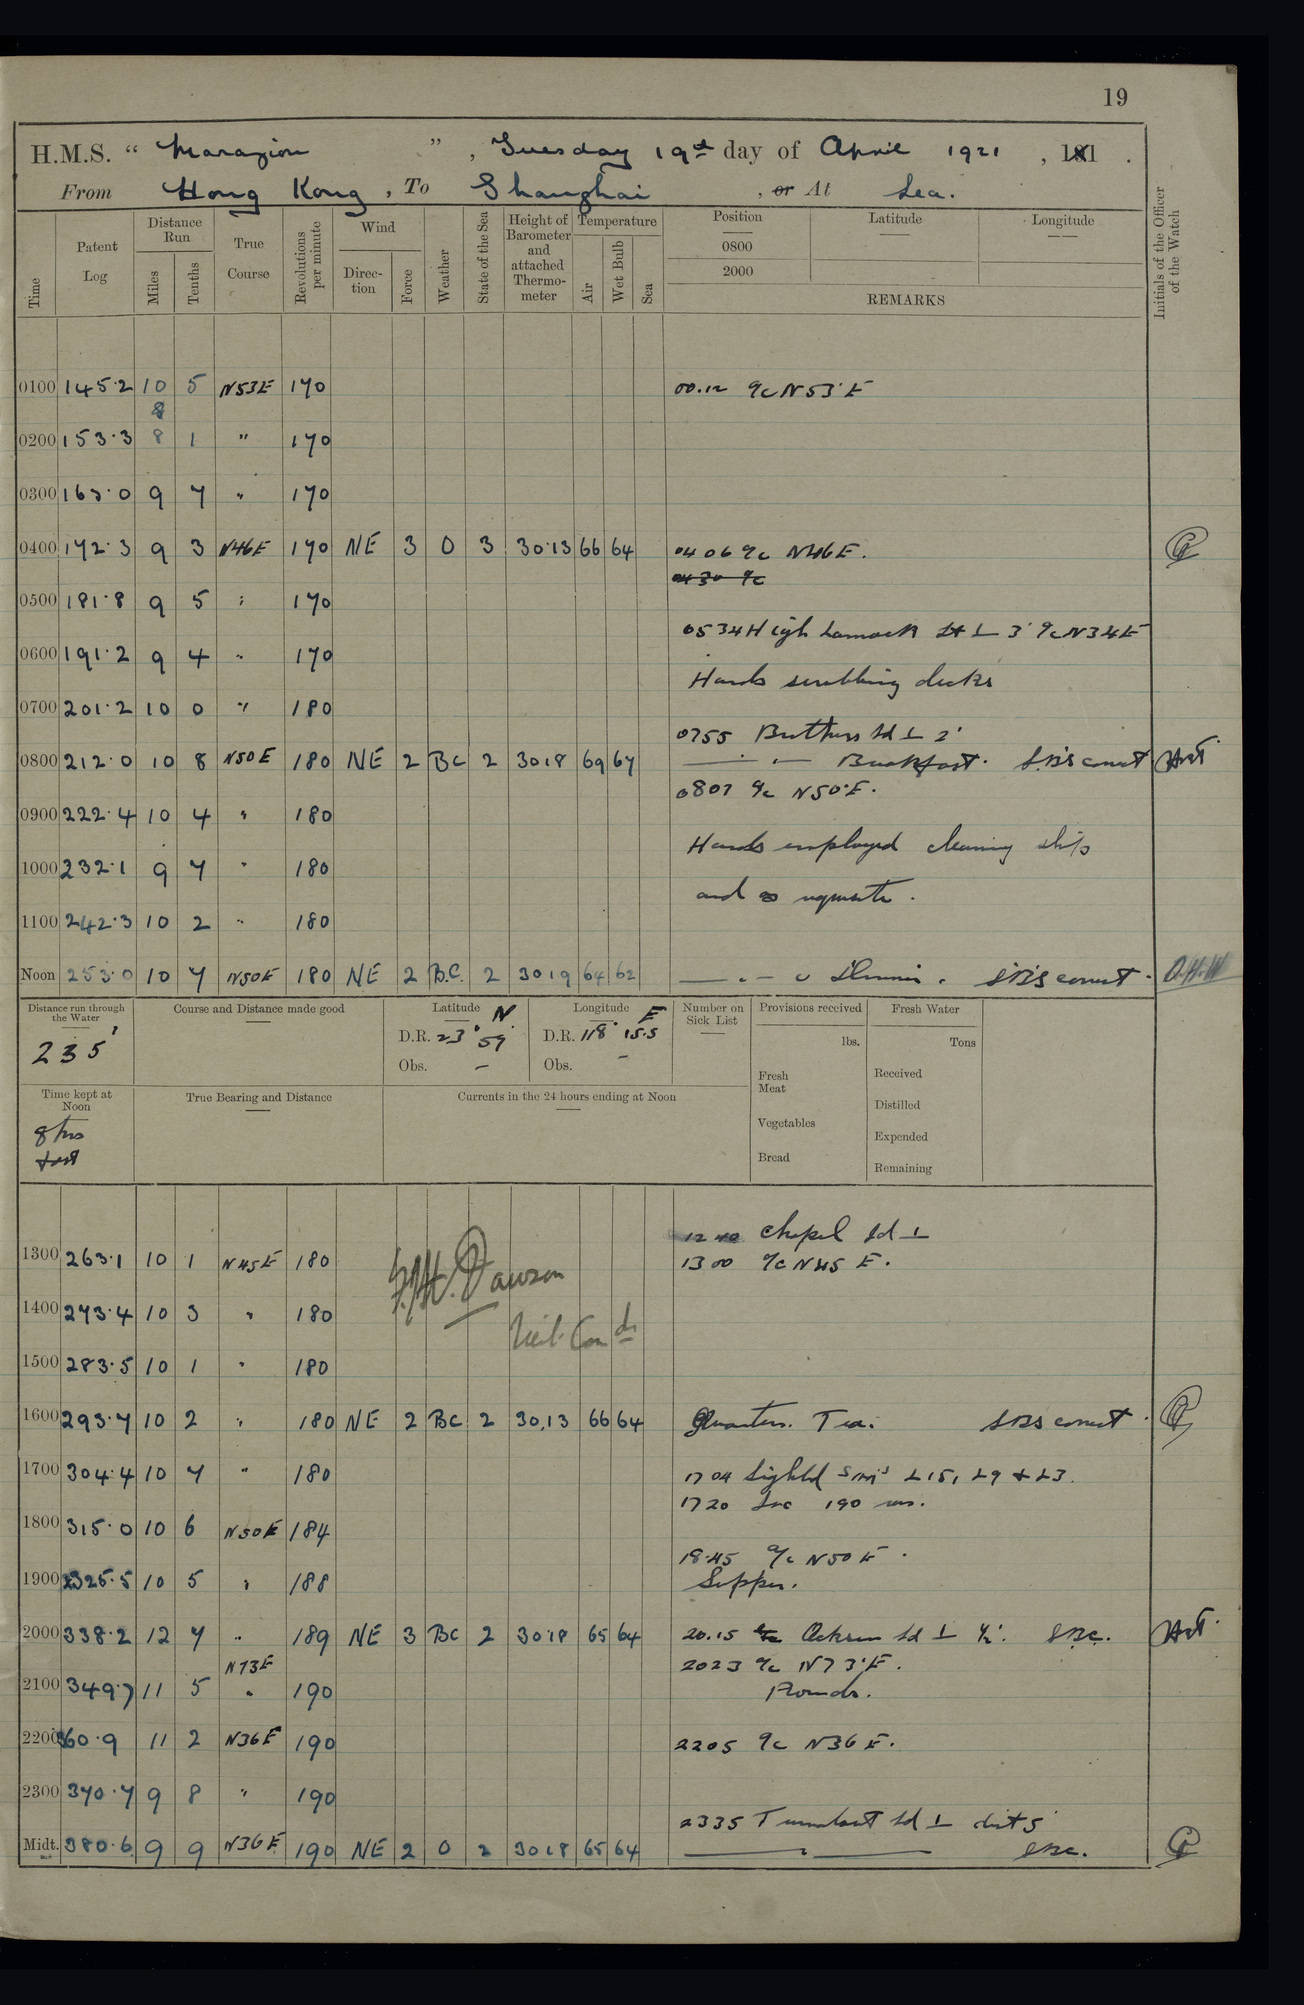 19
H.M.S. “ Marazion ” , Tuesday 19th day of April 1921 , 181 .
From Hong Kong , To Shanghai , or At Sea.
Time Patent Log Distance Run Miles Tenths True Course Revolutions per minute Wind Direction Force Weather State of the Sea Height of Barometer and attached Thermometer Temperature Air Wet Bulb Sea Position 0800 2000 Latitude Longitude REMARKS Initials of the Officer of the Watch
0100 145.2 10 5 N53E 170 00.12 a/c N53°E
8
0200 153.3 8 1 " 170
0300 163.0 9 7 " 170
0400 172.3 9 3 N46E 170 NE 3 O 3 30.13 66 64 0406 a/c N46E.
0430 a/c
0500 181.8 9 5 " 170
0534 High Lamock Lt ⊥ 3' a/c N34E
0600 191.2 9 4 " 170
Hands scrubbing decks
0700 201.2 10 0 " 180
0755 Brothers Id ⊥ 2'
0800 212.0 10 8 N50E 180 NE 2 BC 2 30.18 69 67 Breakfast. SBS correct
0807 a/c N50°E.
0900 222.4 10 4 " 180
Hands employed cleaning ship
1000 232.1 9 7 " 180
and as requisite.
1100 242.3 10 2 " 180
Noon 253.0 10 7 N50E 180 NE 2 B.C. 2 30.19 64 62 Dinner. SBS correct. O.H.W
Distance run through the Water 235' Course and Distance made good Latitude N D.R. 23° 59' Obs. – Longitude E D.R. 118° 15.5 Obs. – Number on Sick List Provisions received lbs. Fresh Meat Vegetables Bread Fresh Water Tons Received Distilled Expended Remaining
Time kept at Noon 8 hrs fast True Bearing and Distance Currents in the 24 hours ending at Noon
1240 Chapel Id ⊥
1300 263.1 10 1 N45E 180 1300 a/c N45 E.
J.H. Dawson
1400 273.4 10 3 " 180
Lieut. Comdr
1500 283.5 10 1 " 180
1600 293.7 10 2 " 180 NE 2 BC 2 30.13 66 64 Quarters. Tea. SBS correct.
1700 304.4 10 7 " 180 1704 Sighted Sm's L15, L9 & L3.
1720 Inc 190 revs.
1800 315.0 10 6 N50E 184
18.45 a/c N50E.
1900 325.5 10 5 " 188 Supper.
2000 338.2 12 7 " 189 NE 3 BC 2 30.18 65 64 20.15 Ocksen Id ⊥ ½'. SBC.
N73E 2023 a/c N73°E.
2100 349.7 11 5 " 190 Rounds.
2200 360.9 11 2 N36E 190 2205 a/c N36E.
2300 370.7 9 8 " 190
2335 Turnabout Id ⊥ dist 5'
Midt. 380.6 9 9 N36E 190 NE 2 O 2 30.18 65 64 SBC.